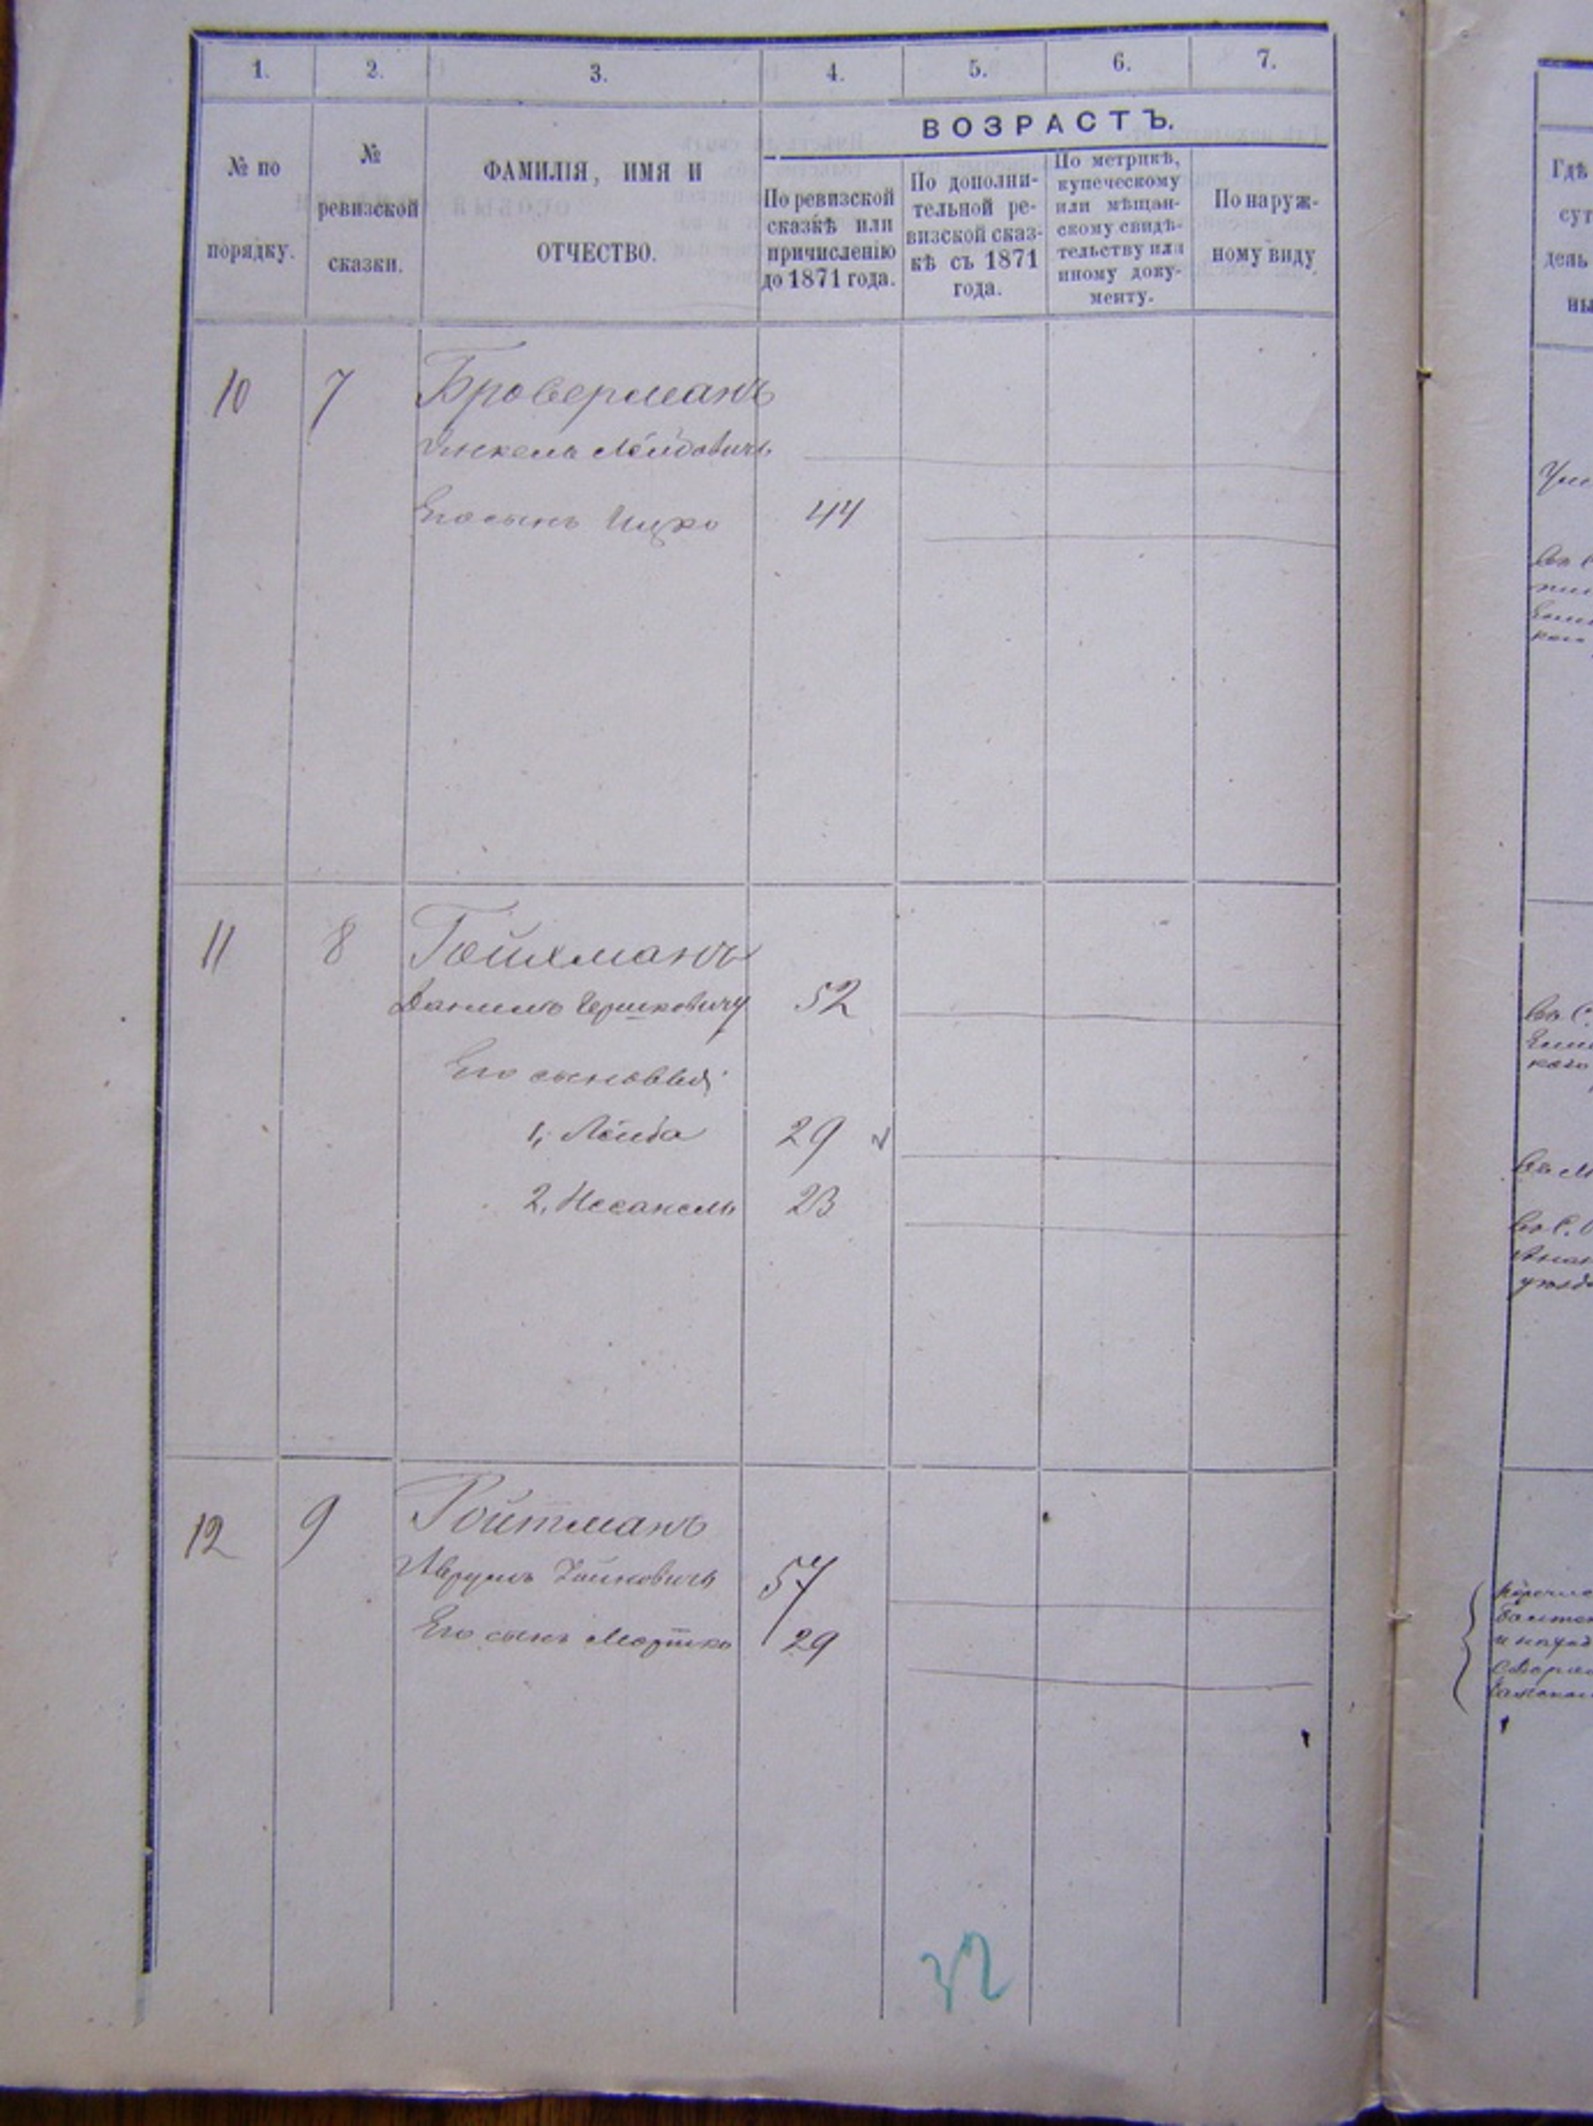 1. 2. 3. 4. 5. 6. 7.
№ по порядку.
№ ревизской сказки.
ФАМИЛІЯ, ИМЯ И
ОТЧЕСТВО.
ВОЗРАСТЪ.
По ревизской
сказкѣ или
причисленію
до 1871 года.
По дополни-
тельной ре-
визской сказ-
кѣ съ 1871
года.
По метрикѣ,
купеческому
или мѣщан-
скому свидѣ-
тельству или
иному доку-
менту.
По наруж-
ному виду
Гдѣ
сут
день
ны
10 7 Броверманъ
Лейбовичъ
Его сынъ Ицко 44
11 8 Гойхманъ
Данилъ Гершковичъ 52
Его сыновья
1, Лейба 29
2, Несанель 23
12 9 Ройтманъ
Аврумъ 57
Его сынъ Мортко 29
32